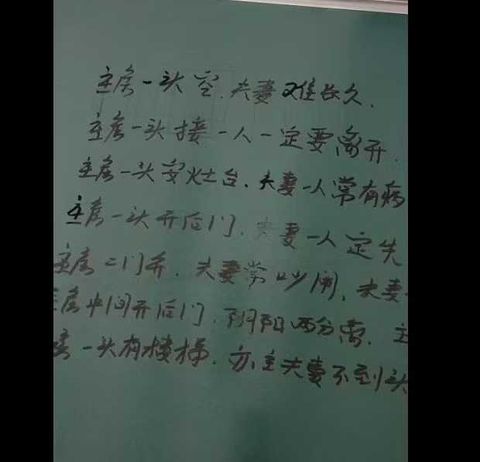 主房一头空.夫妻难长久.
主房一头接一人一定要离开.
主房一头安灶台.夫妻一人常有病
主房一头开后门.夫妻一人定失
主房二门并.夫妻常吵闹.夫妻
房中间开后门.阴阳两分离.主
房一头有楼梯.亦主夫妻不到头